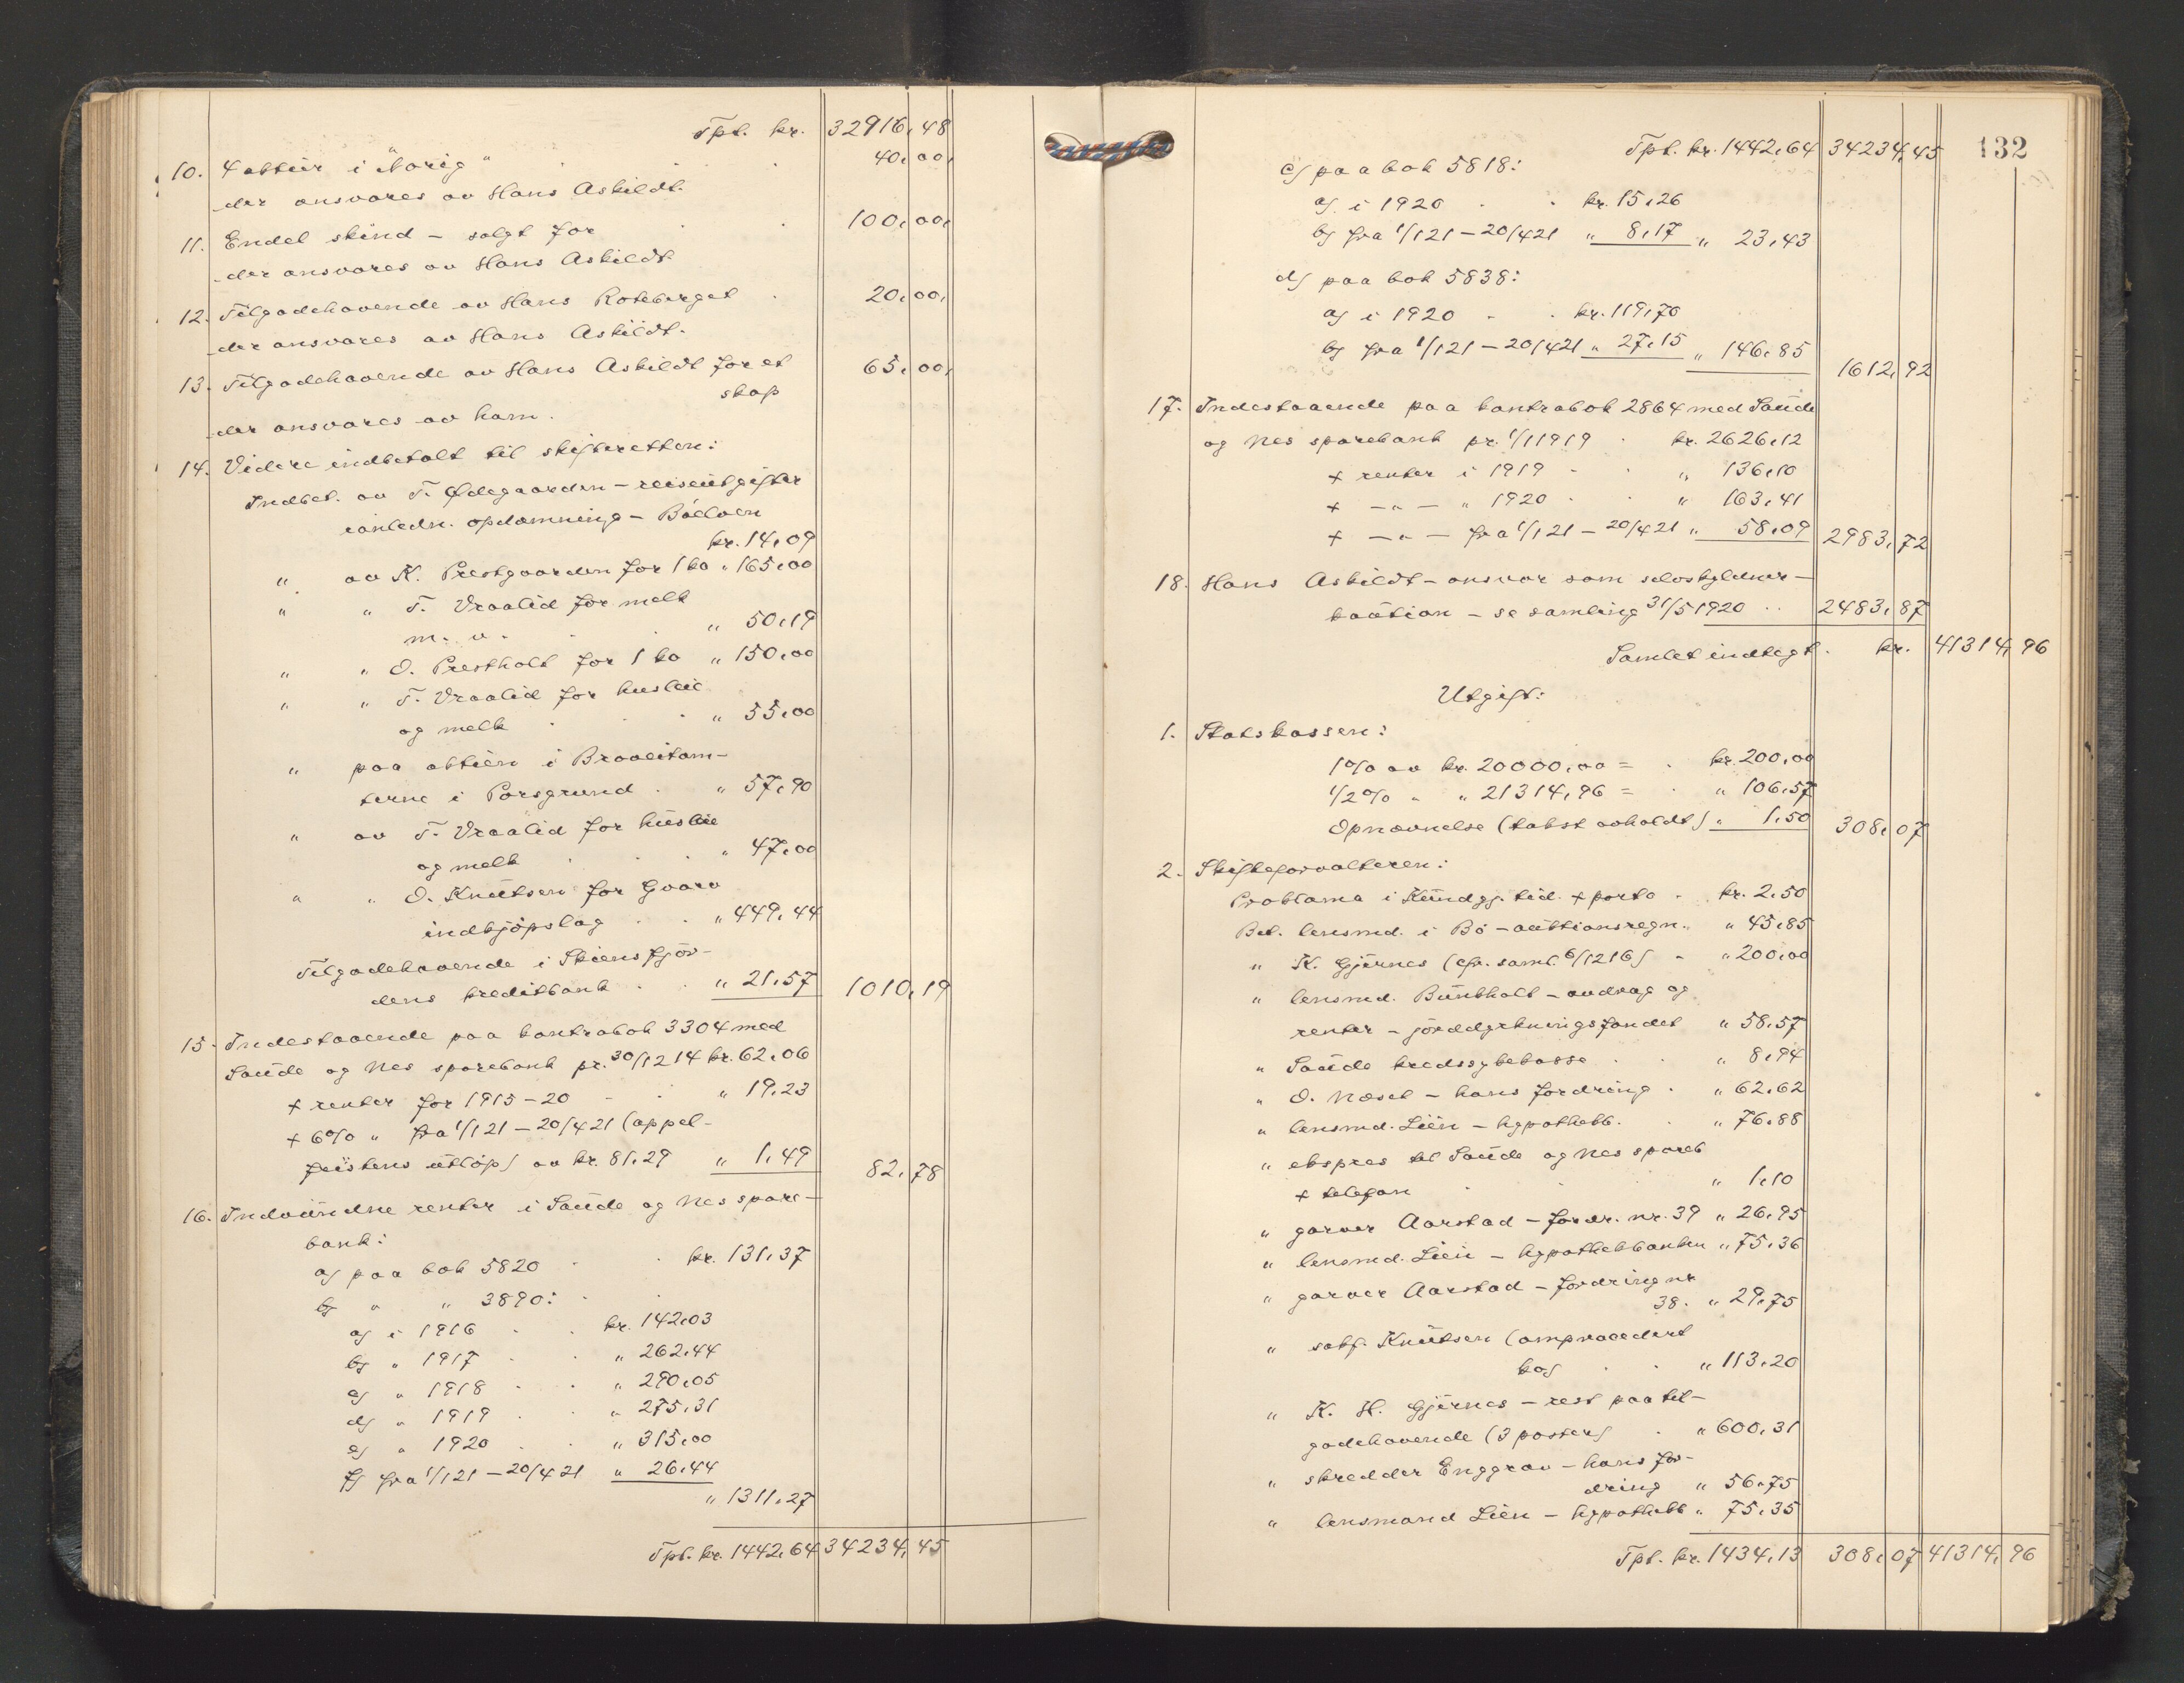 Tpt. kr. 32916,48
10. 4 aktier i "Norig" . . . 40,00,
der ansvares av Hans Askildt.
11. Endel skind - solgt for . . 100,00,
der ansvares av Hans Askildt
12. Tilgodehavende av Hans Roteberget . 20,00,
der ansvares av Hans Askildt.
13. Tilgodehavende av Hans Askildt for et 65,00,
skap
der ansvares av ham.
14. Videre indbetalt til skifteretten:
Indbet. av T. Ødegaarden - reiseutgifter
ianledn. opdæmning - Båelven
kr. 14,09
" av K. Prestgaarden for 1 ko " 165,00
" " T. Vraalid for melk
m. v. . . " 50,19
" " O. Prestholt for 1 ko " 150,00
" " T. Vraalid for husleie
og melk . . . " 55,00
" paa aktien i
terne i Porsgrund . " 57,90
" av T. Vraalid for husleie
og melk . . . " 47,00
" " O. Knutsen for Gvarv
indkjøpslag . . " 449,44
Tilgodehavende i Skiensfjor-
dens kreditbank . . " 21,57 1010,19
15. Indestaaende paa kontrabok 3304 med
Saude og Nes sparebank pr. 30/12 14 kr. 62,06
+ renter for 1915-20 - . " 19,23
+ 6% " fra 1/1 21 - 20/4 21 (appel-
fristens utløp) av kr. 81,29 " 1,49 82,78
16. Indvundne renter i Saude og Nes spare-
bank:
a) paa bok 5820 . . kr. 131,37
b) " " 3890: . .
a) i 1916 . . kr. 142,03
b) " 1917 . . " 262,44
c) " 1918 . . " 290,05
d) " 1919 . . " 275,31
e) " 1920 . . " 315,00
f) fra 1/1 21 - 20/4 21 " 26,44
" 1311,27
Tpt. kr. 1442,64 34234,45
132
Tpt. kr. 1442,64 34234,45
c) paa bok 5818:
a) i 1920 . . kr. 15,26
b) fra 1/1 21 - 20/4 21 " 8,17 " 23,43
d) paa bok 5838:
a) i 1920 . . kr. 119,70
b) fra 1/1 21 - 20/4 21 " 27,15 " 146,85
1612,92
17. Indestaaende paa kontrabok 2864 med Saude
og Nes sparebank pr. 1/1 1919 . kr. 2626,12
+ renter i 1919 . . " 136,10
+ -"- " 1920 . . " 163,41
+ -"- fra 1/1 21 - 20/4 21 " 58,09 2983,72
18. Hans Askildt - ansvar som selvskyldner-
kaution - se samling 31/5 1920 . . 2483,87
Samlet indtegt . kr. 41314,96
Utgift:
1. Statskassen:
1% av kr. 20000,00 = . kr. 200,00
1/2% " " 21314,96 = . " 106,57
Opnævnelse (takst avholdt) " 1,50 308,07
2. Skifteforvalteren:
Proklama i Kundgj. tid. + porto . kr. 2,50
Bet. lensmd. i Bø - auktionsregn. " 45,85
" K. Gjernes (cfr. saml. 6/12 16) - " 200,00
" lensmd. Bunkholt - avdrag og
renter - jorddyrkningsfondet " 58,57
" Saude kredssykekasse . . " 8,94
" O. Næset - hans fordring . " 62,62
" lensmd. Lien - hypothekb. . " 76,88
" ekspres til Saude og Nes spareb
+ telefon . . " 1,10
" garver Aarstad - fordr. nr. 39 " 26,95
" lensmd. Lien - hypothekbanken " 75,36
" garver Aarstad - fordring nr
38. " 29,75
" sakf. Knutsen (omprocedert
ko) . . " 113,20
" K. H. Gjernes - rest paa til-
godehavende (3 poster) . " 600,31
" skredder Enggrav - hans for-
dring " 56,75
" lensmand Lien - hypothekb " 75,35
Tpt. kr. 1434,13 308,07 41314,96